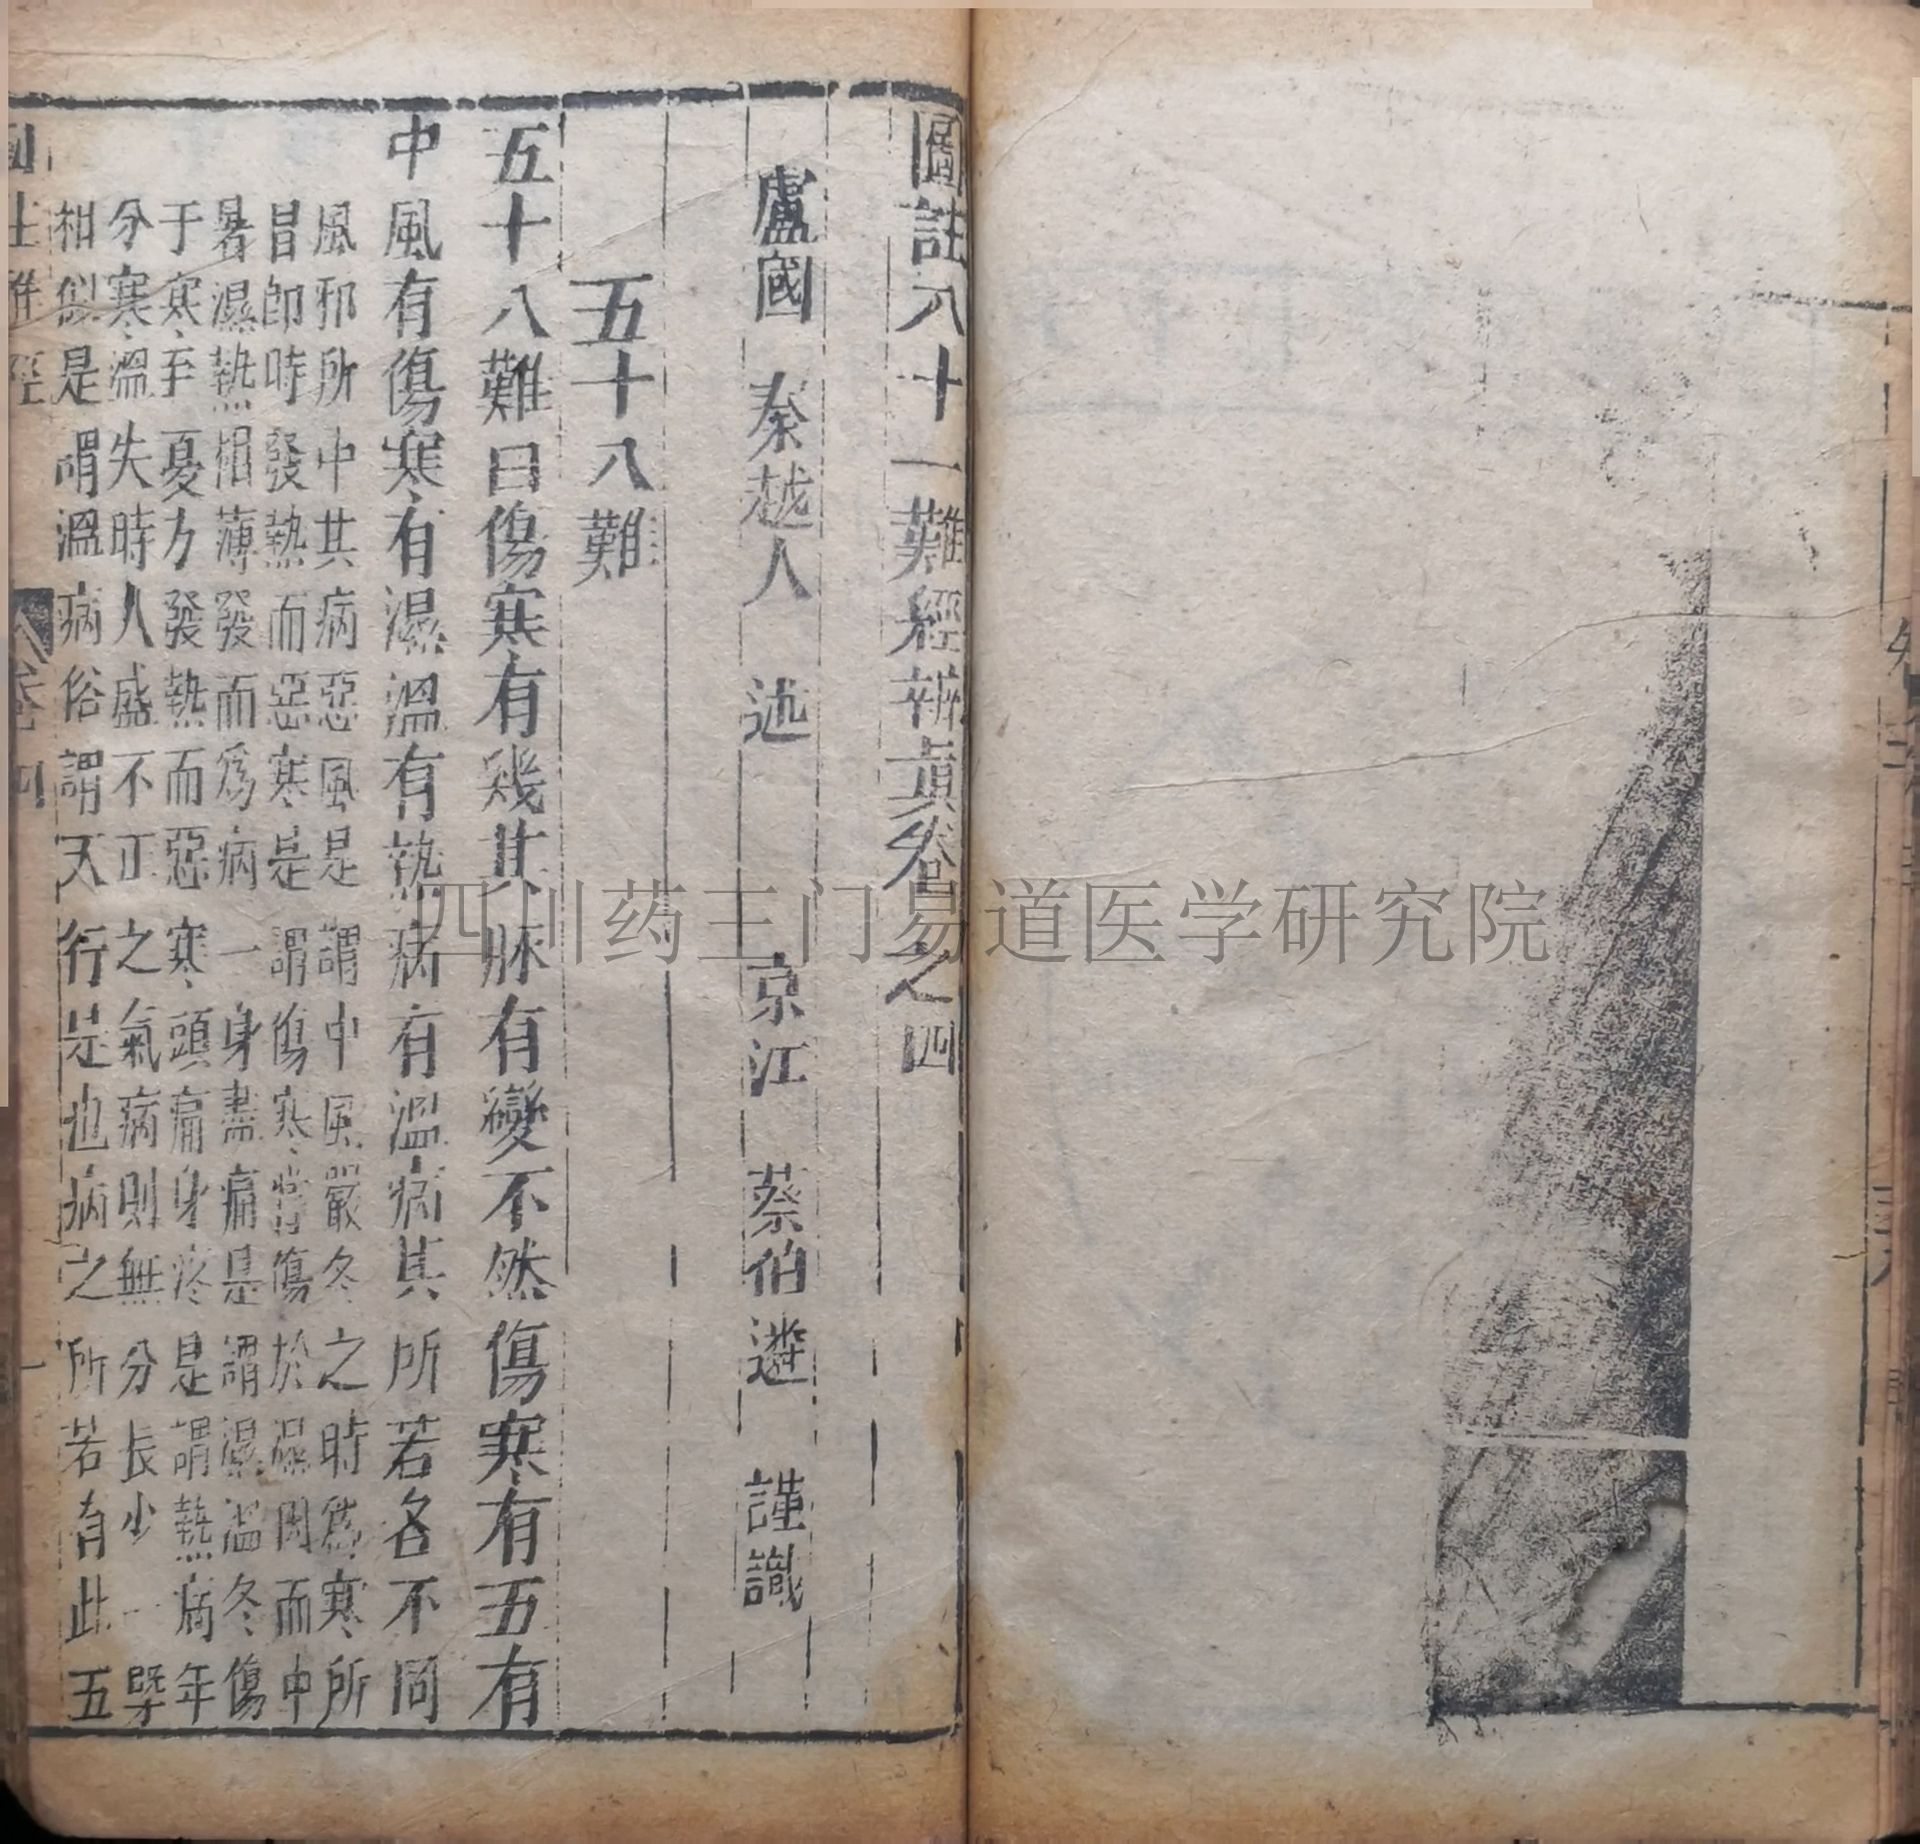 圖註八十一難經辨真卷之四
盧國 秦越人 述 京江 蔡伯遴 謹識
五十八難
五十八難曰傷寒有幾其脉有變不然傷寒有五有
中風有傷寒有濕溫有熱病有溫病其所若各不同
風邪所中其病惡風是謂中風嚴冬之時爲寒所
冒即時發熱而惡寒是謂傷寒嘗傷於濕因而中
暑濕熱相薄發而爲病一身盡痛是謂濕溫冬傷
于寒至憂方發熱而惡寒頭痛身疼是謂熱病年
分寒溫失時人盛不正之氣病則無分長少一槩
相似是謂溫病俗謂天行是也病之所若有此五
卷四
一
四川药王门易道医学研究院